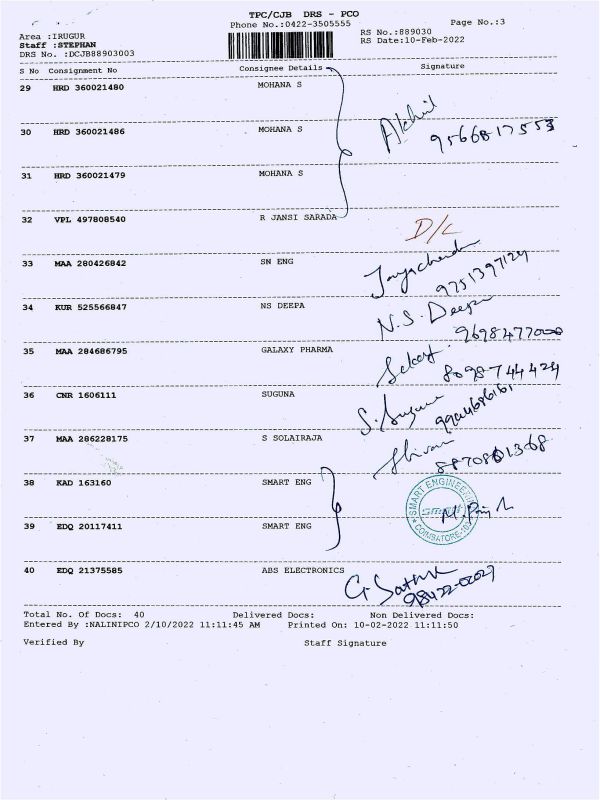 TPC/CJB DRS - PCO
Phone No.:0422-3505555
Page No.:3
Area :IRUGUR
RS No.:889030
Staff :STEPHAN
RS Date:10-Feb-2022
DRS No. :DCJB88903003
S No Consignment No Consignee Details Signature
29 HRD 360021480 MOHANA S
30 HRD 360021486 MOHANA S
Akhil
9566817553
31 HRD 360021479 MOHANA S
32 VPL 497808540 R JANSI SARADA
D/L
33 MAA 280426842 SN ENG
9751397124
34 KUR 525566847 NS DEEPA
N.S. Deepa
9698477000
35 MAA 284686795 GALAXY PHARMA
8098744424
36 CNR 1606111 SUGUNA
S. Suguna
37 MAA 286228175 S SOLAIRAJA
38 KAD 163160 SMART ENG
SMART ENGINEERING
COIMBATORE
39 EDQ 20117411 SMART ENG
40 EDQ 21375585 ABS ELECTRONICS
Total No. Of Docs: 40 Delivered Docs: Non Delivered Docs:
Entered By :NALINIPCO 2/10/2022 11:11:45 AM Printed On: 10-02-2022 11:11:50
Verified By Staff Signature